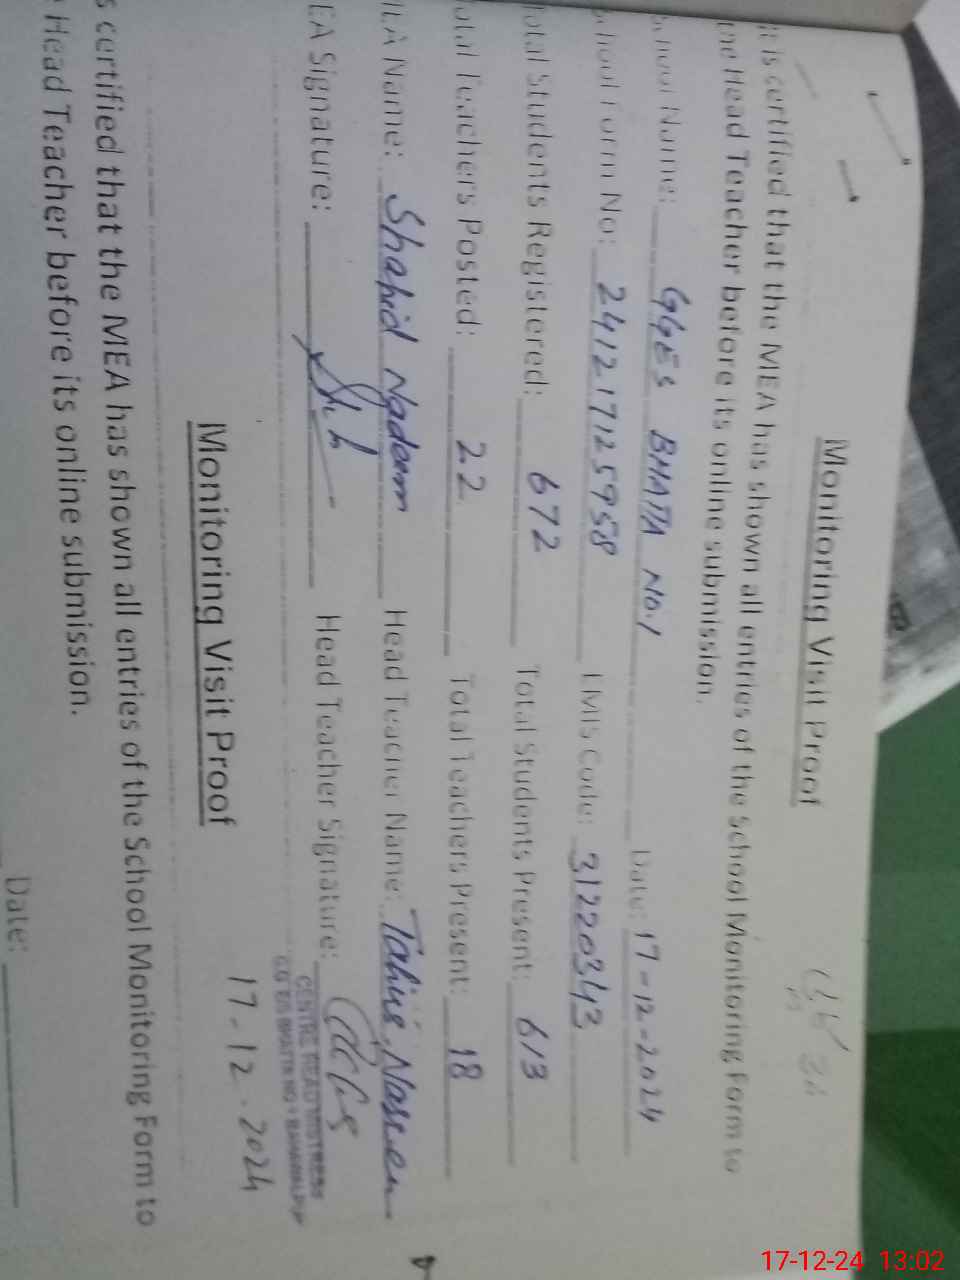 Monitoring Visit Proof
It is certified that the MEA has shown all entries of the School Monitoring Form to
the Head Teacher before its online submission.
School Name: GGES BHATTA No.1 Date: 17-12-2024
School Form No: 241217125958 EMIS Code: 31220343
Total Students Registered: 672 Total Students Present: 613
Total Teachers Posted: 22 Total Teachers Present: 18
MEA Name: Shahid Nadeem Head Teacher Name:
EA Signature: Head Teacher Signature:
CENTRE HEAD MISTRESS
BHATTA NO 1 BAHAWALPUR
17-12-2024
Monitoring Visit Proof
s certified that the MEA has shown all entries of the School Monitoring Form to
Head Teacher before its online submission.
Date:
17-12-24 13:02